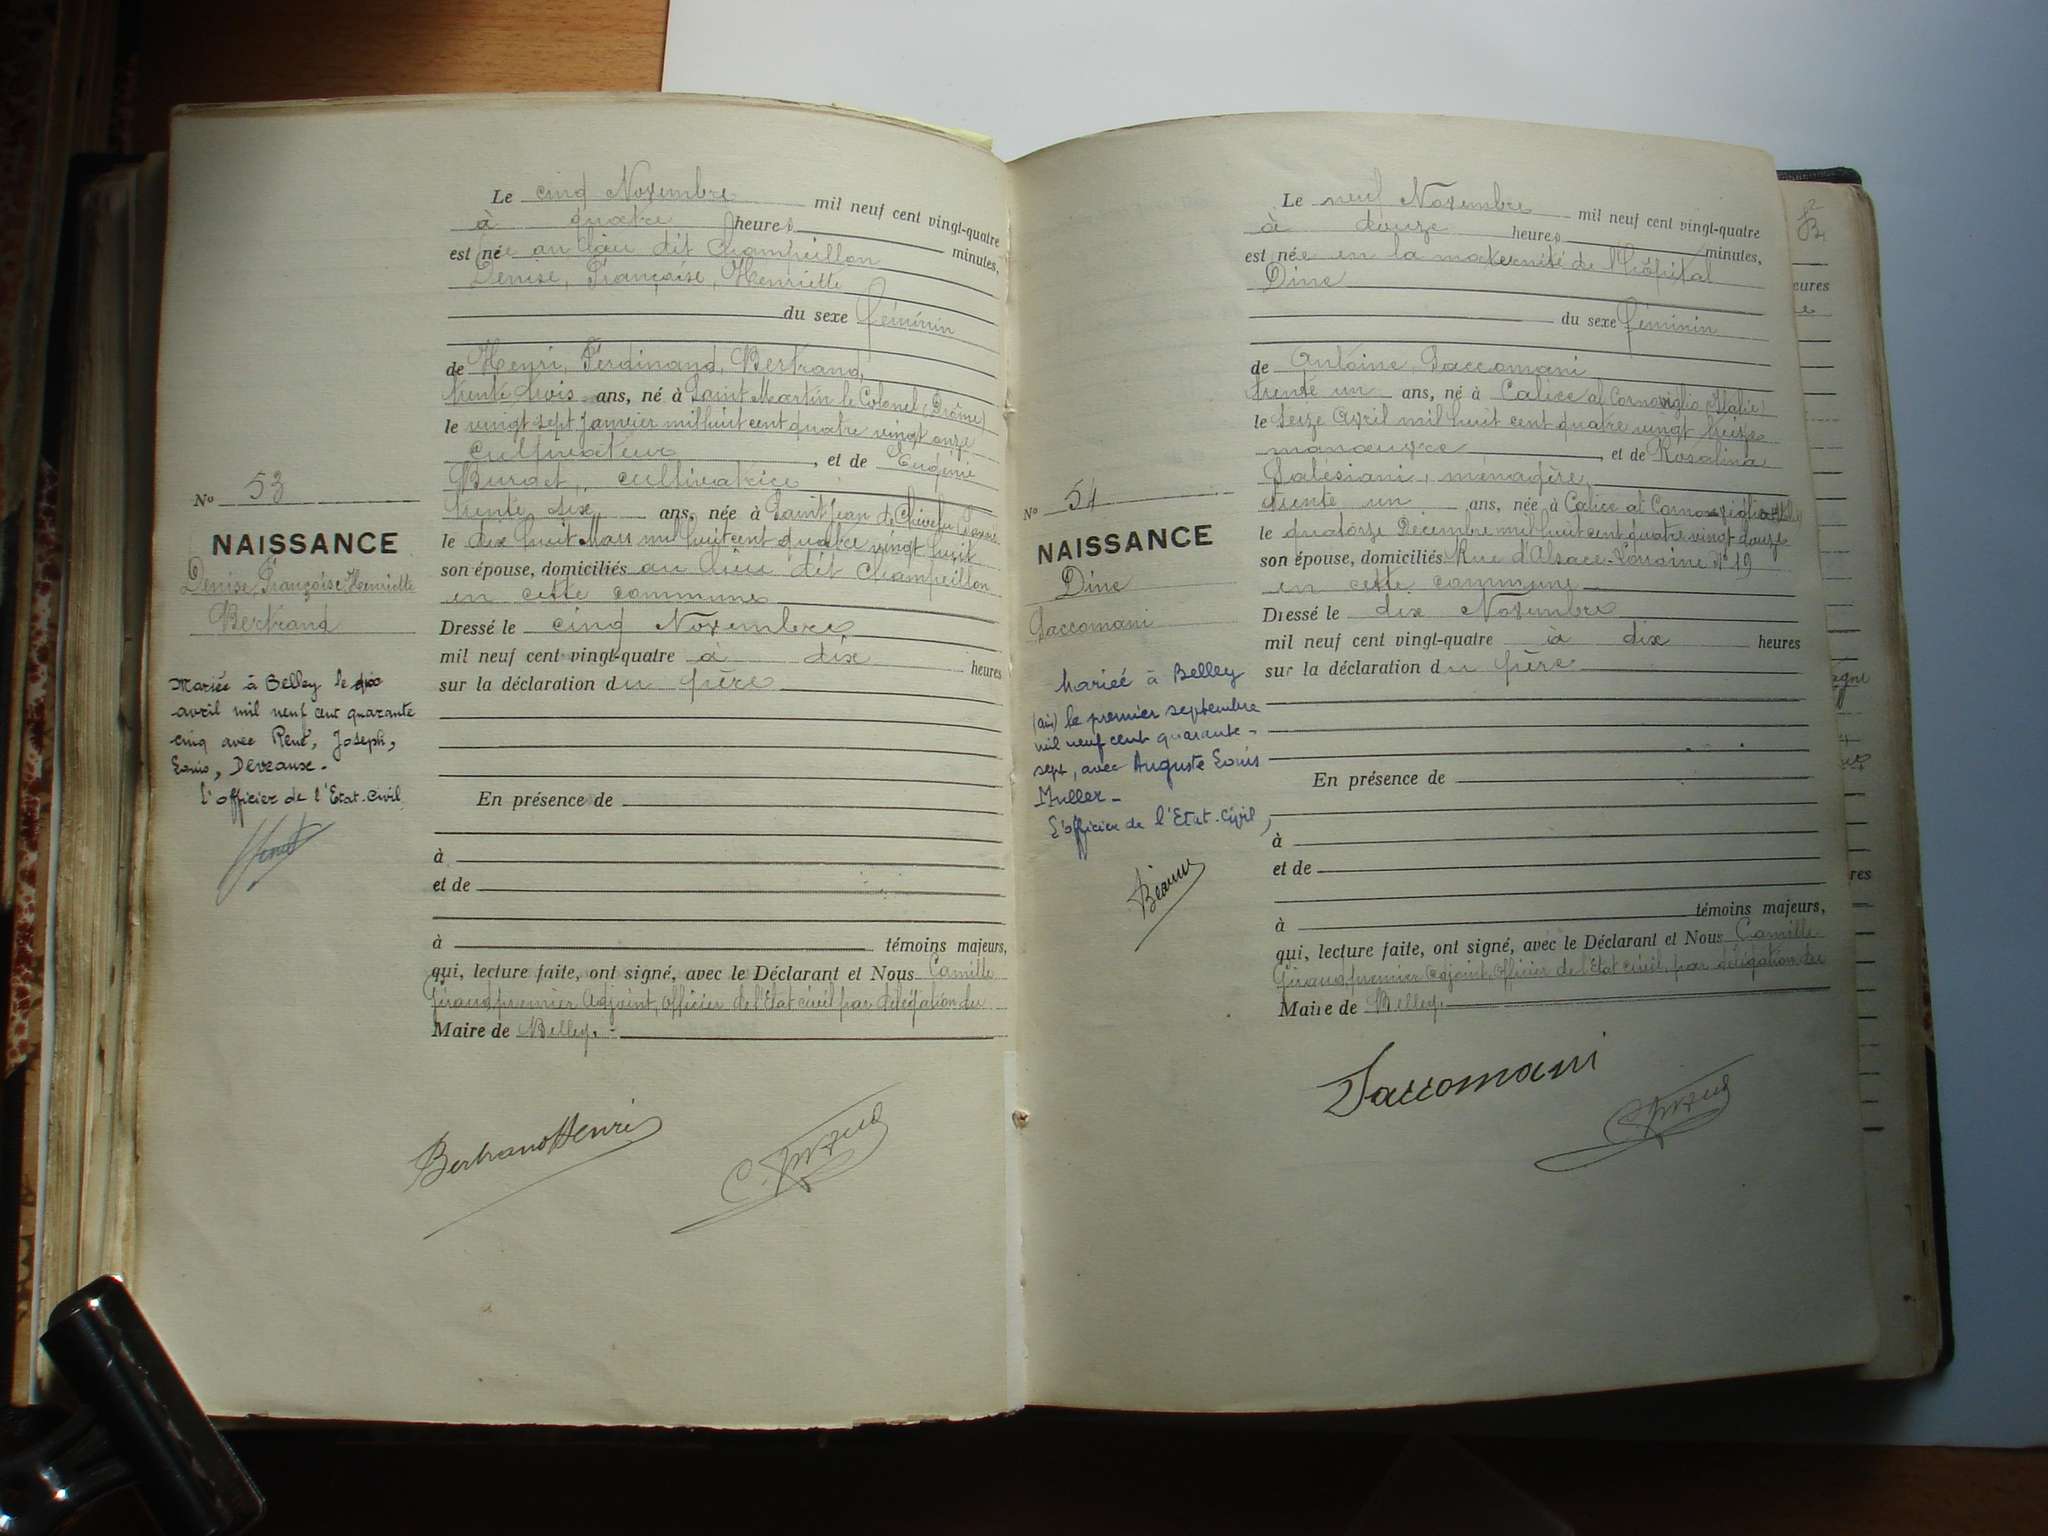 Le cinq Novembre mil neuf cent vingt-quatre
à quatre heures minutes,
est née au lieu dit Champeillon
Denise, Françoise, Henriette
du sexe féminin
de Henri, Ferdinand, Bertrand,
trente trois ans, né à Saint Martin le Colonel (Drôme)
le vingt sept Janvier mil huit cent quatre vingt onze
cultivateur, et de Eugénie
Burdet, cultivatrice
trente six ans, née à Saint Jean de Chevelu (Savoie)
le dix huit Mars mil huit cent quatre vingt huit
son épouse, domiciliés au lieu dit Champeillon
en cette commune
Dressé le cinq Novembre
mil neuf cent vingt-quatre à dix heures
sur la déclaration du père
En présence de
à
et de
à témoins majeurs,
qui, lecture faite, ont signé, avec le Déclarant et Nous Camille
Giraud, premier Adjoint, Officier de l'Etat civil par délégation du
Maire de Belley.
Bertrand Henri
C. Giraud
No 53
NAISSANCE
Denise, Françoise, Henriette
Bertrand
Mariée à Belley le dix
avril mil neuf cent quarante
cinq avec René, Joseph,
Louis, Devraux.
L'officier de l'Etat-Civil,
Le neuf Novembre mil neuf cent vingt-quatre
à douze heures minutes,
est née en la maternité de l'Hôpital
Dine
du sexe féminin
de Antoine Saccomani
trente un ans, né à Calice al Cornoviglio (Italie)
le seize Avril mil huit cent quatre vingt treize
manœuvre, et de Rosalina
Salesiani, ménagère
trente un ans, née à Calice al Cornoviglio
le quatorze Décembre mil huit cent quatre vingt douze
son épouse, domiciliés Rue d'Alsace-Lorraine N° 19
en cette commune
Dressé le dix Novembre
mil neuf cent vingt-quatre à dix heures
sur la déclaration du père
En présence de
à
et de
à témoins majeurs,
qui, lecture faite, ont signé, avec le Déclarant et Nous Camille
Giraud, premier Adjoint, Officier de l'Etat civil, par délégation du
Maire de Belley.
Saccomani
C. Giraud
No 54
NAISSANCE
Dine
Saccomani
Mariée à Belley
(Ain) le premier septembre
mil neuf cent quarante-
sept, avec Auguste Louis
Muller.
L'officier de l'Etat-Civil,